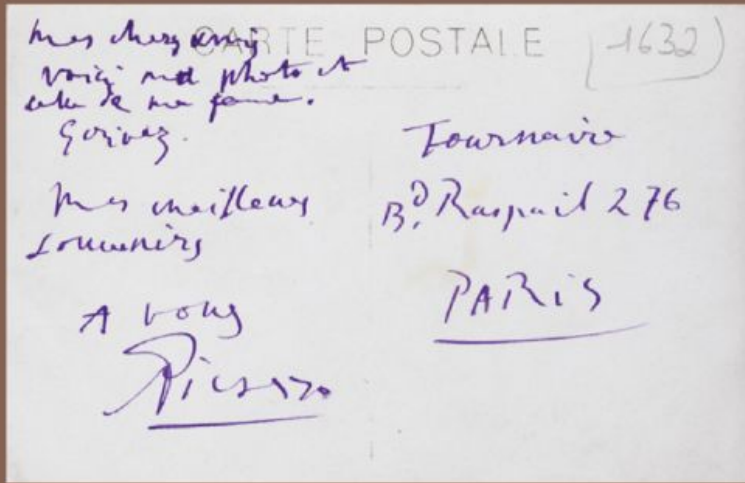 CARTE POSTALE
(1632)
mes chers amis
voici ma photo et
celle de ma fame.
Mes meilleurs
souvenirs
A vous
Picasso
Tournaire
Bd. Raspail 276
PARIS